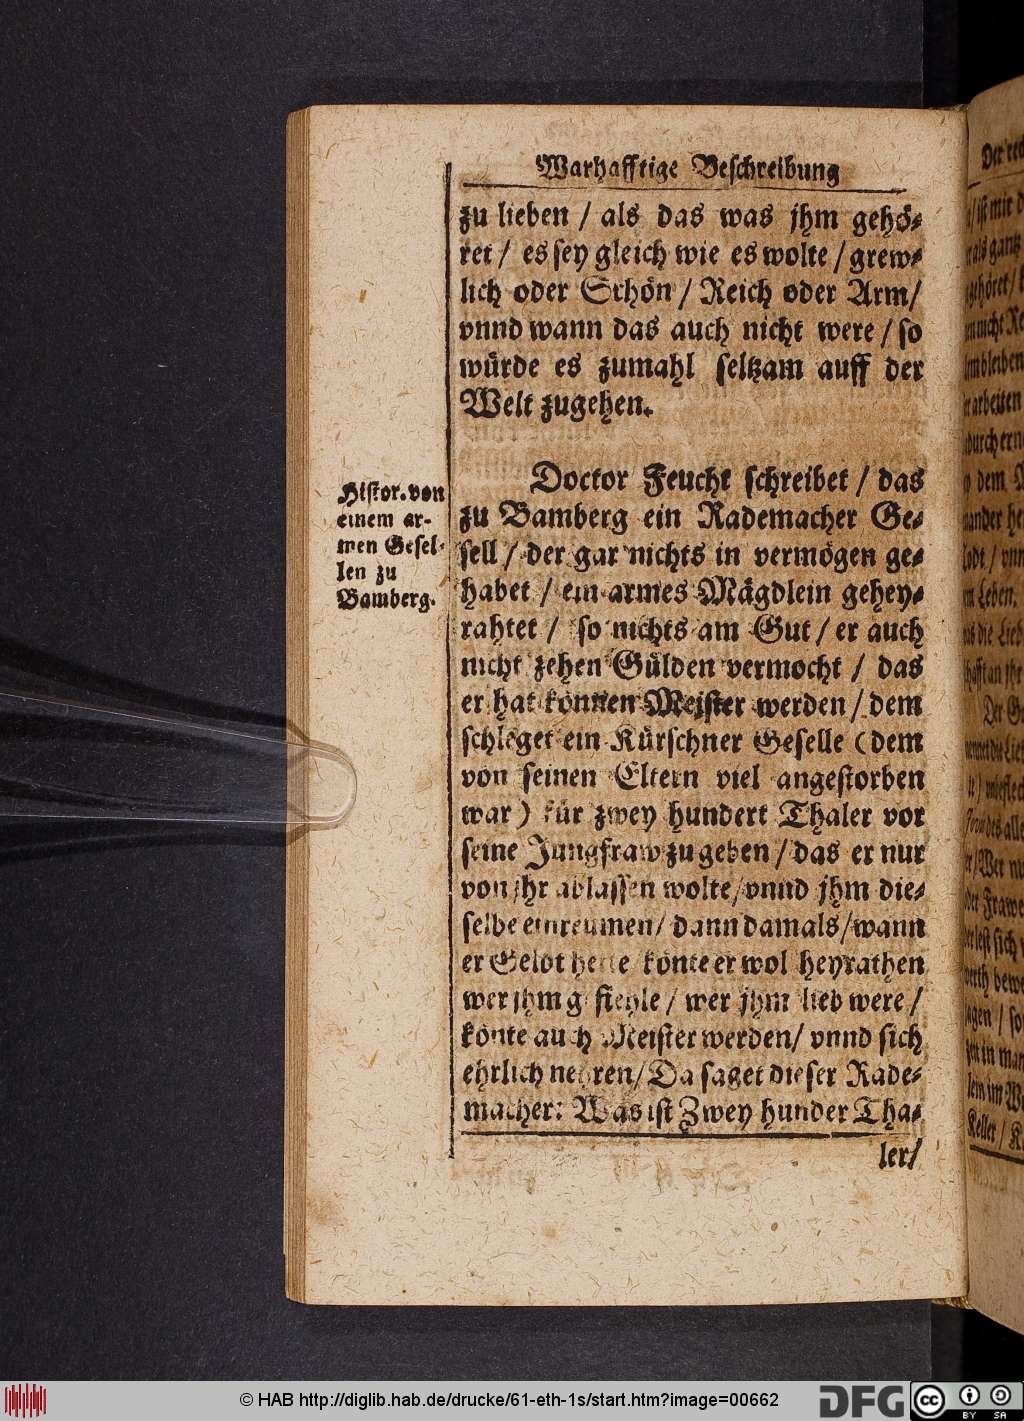 Warhafftige Beschreibung
zu lieben / als das was jhm gehö-
ret / es sey gleich wie es wolte / grew-
lich oder Schön / Reich oder Arm /
vnnd wann das auch nicht were / so
würde es zumahl seltzam auff der
Welt zugehen.
Histor. von
einem ar-
men Gesel-
len zu
Bamberg.
Doctor Feucht schreibet / das
zu Bamberg ein Rademacher Ge-
sell / der gar nichts in vermögen ge-
habet / ein armes Mägdlein gehey-
rahtet / so nichts am Gut / er auch
nicht zehen Gülden vermocht / das
er hat können Meister werden / dem
schleget ein Kürschner Geselle (dem
von seinen Eltern viel angestorben
war) für zwey hundert Thaler vor
seine Jungfraw zu geben / das er nur
von jhr ablassen wolte / vnnd jhm die-
selbe einreumen / dann damals / wann
er Geldt hette könte er wol heyrathen
wer jhm gefiehle / wer jhm lieb were /
könte auch Meister werden / vnnd sich
ehrlich nehren / Da saget dieser Rade-
macher: Was ist Zwey hunder Tha-
ler /
Der
ist mit
als gantz
gehöret /
nicht
bleiben
arbeiten
durch
dem
Leben.
die Lieb
an jhr
Der
/ Wer
Frawe
lest sich
bewe
/ so
in man
im
Keller /
© HAB http://diglib.hab.de/drucke/61-eth-1s/start.htm?image=00662
DFG
cc
BY SA